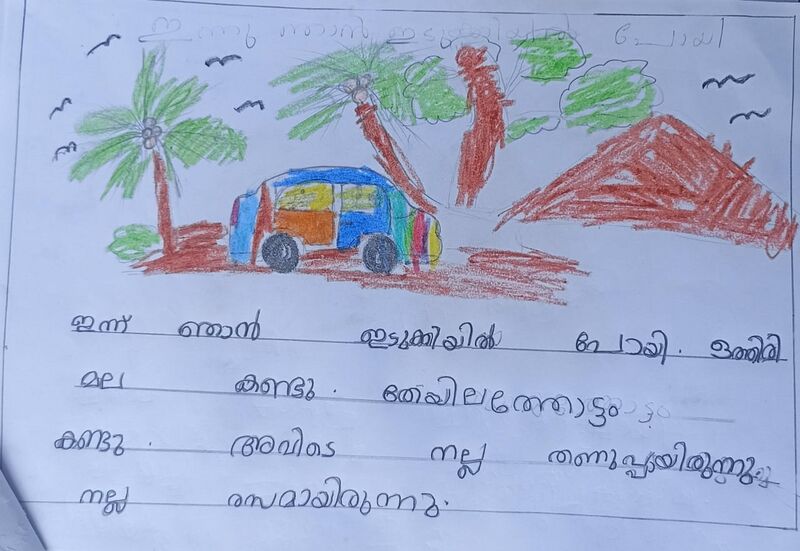 ഇന്നു ഞാൻ ഇടുക്കിയിൽ പോയി
ഇന്ന് ഞാൻ ഇടുക്കിയിൽ പോയി. ഒത്തിരി
മല കണ്ടു. തേയിലത്തോട്ടം
കണ്ടു. അവിടെ നല്ല തണുപ്പായിരുന്നു
നല്ല രസമായിരുന്നു.